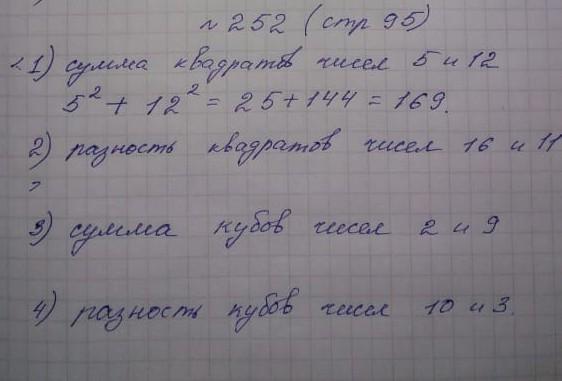 №252 (стр 95)
1) сумма квадратов чисел 5 и 12
5² + 12² = 25 + 144 = 169.
2) разность квадратов чисел 16 и 11
3) сумма кубов чисел 2 и 9
4) разность кубов чисел 10 и 3.